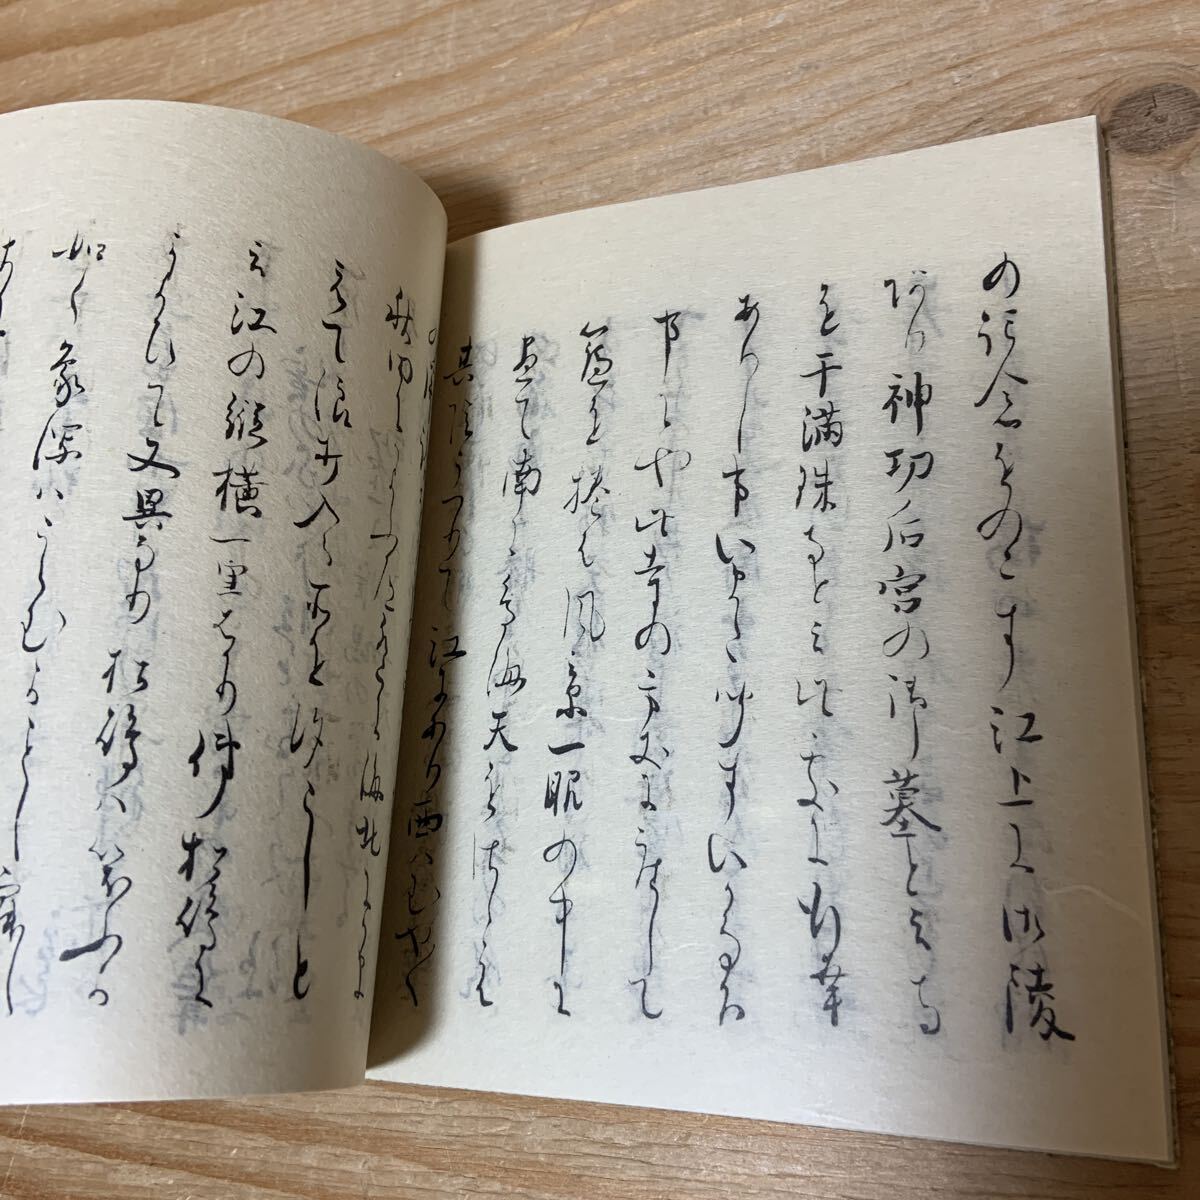 の記念をのこす江上に御陵
あり神功后宮の御墓と云寺
を干満珠寺と云此処に行幸
ありし事いまた聞すいかなる
事にや此寺の方丈に座して
簾を捲は風景一眼の中に
尽て南に鳥海天をさゝえ
其陰うつりて江にあり西はむや〱
秋田にかよふ道遥に海北にかま
えて浪打入る所を汐こしと
云江の縦横一里はかり俤松嶋に
かよひて又異なり松嶋は笑ふか
如く象潟はうらむかことし寂し